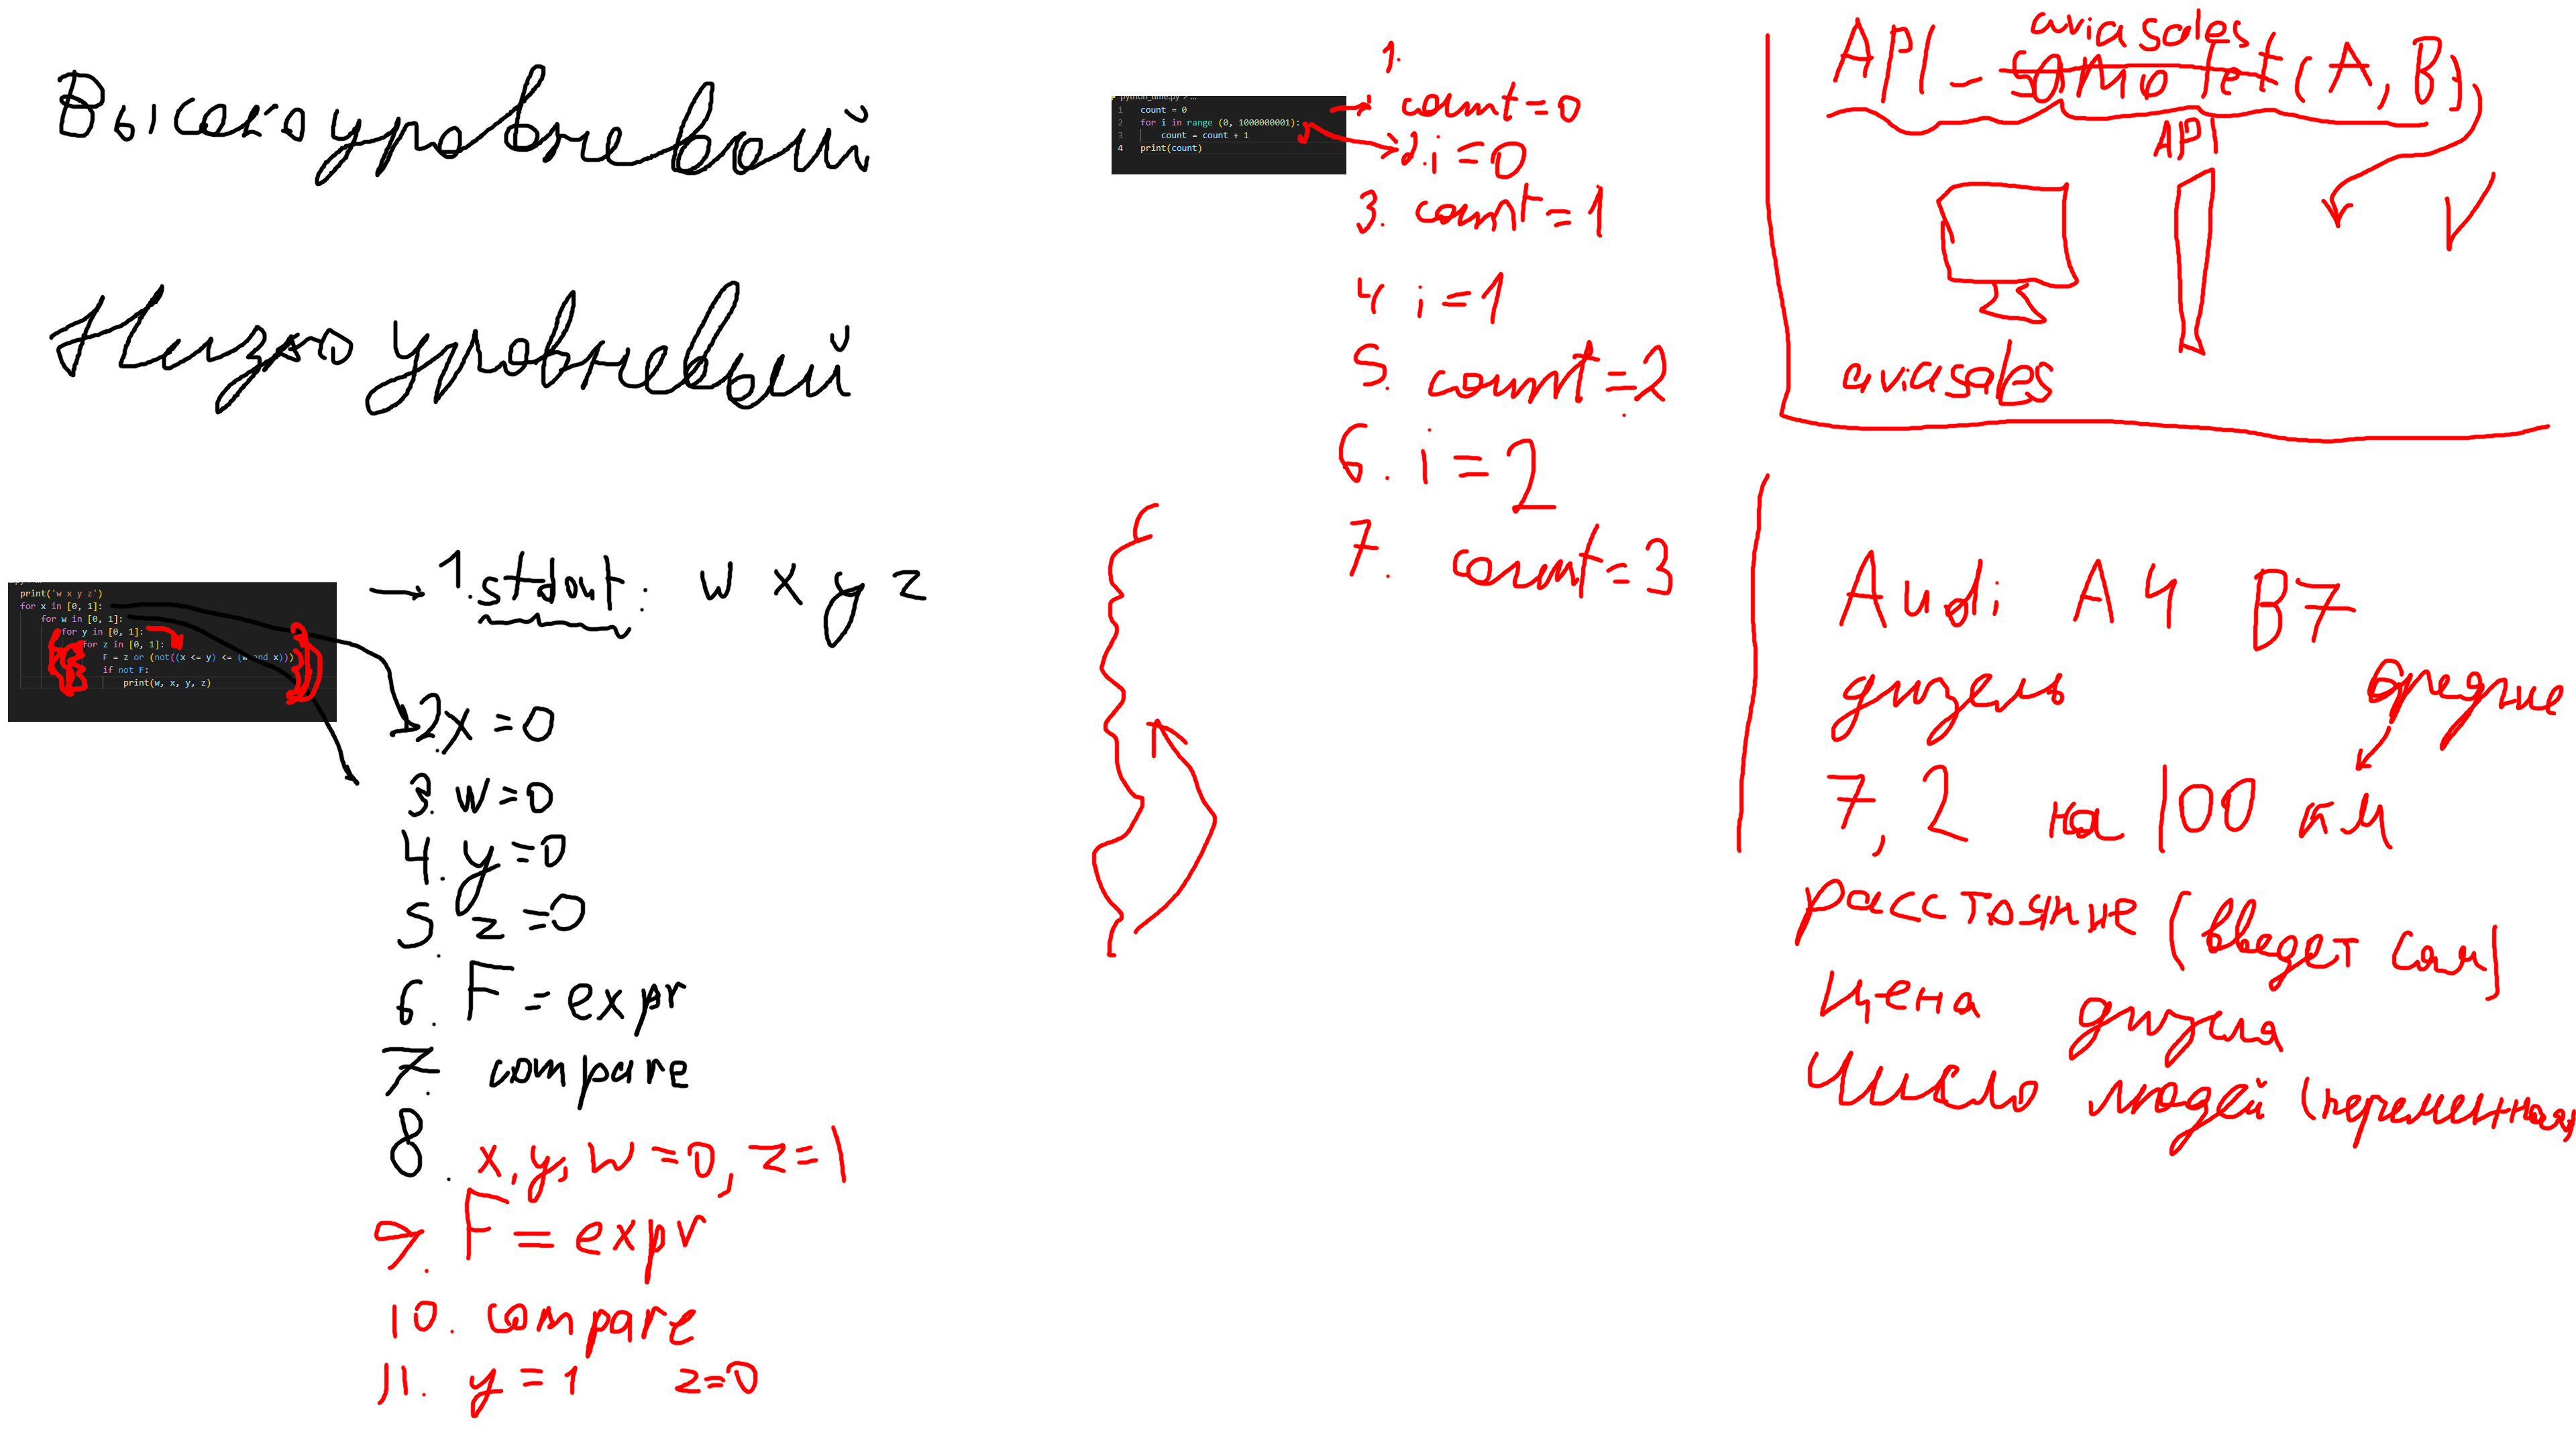 Высокоуровневый
Низкоуровневый
print('w x y z')
for x in [0, 1]:
for w in [0, 1]:
for y in [0, 1]:
for z in [0, 1]:
F = z or (not((x <= y) <= (w and x)))
if not F:
print(w, x, y, z)
1. stdout: w x y z
2. x = 0
3. w = 0
4. y = 0
5. z = 0
6. F = expr
7. compare
8. x, y, w = 0, z = 1
9. F = expr
10. compare
11. y = 1 z = 0
python_time.py > ...
1 count = 0
2 for i in range (0, 1000000001):
3 count = count + 1
4 print(count)
1.
count = 0
2. i = 0
3. count = 1
4 i = 1
5. count = 2
6. i = 2
7. count = 3
aviasales
API - samolet (A, B)
API
aviasales
Audi A4 B7
дизель
средние
7,2 на 100 км
расстояние (введет сам)
цена дизеля
Число людей (переменная)